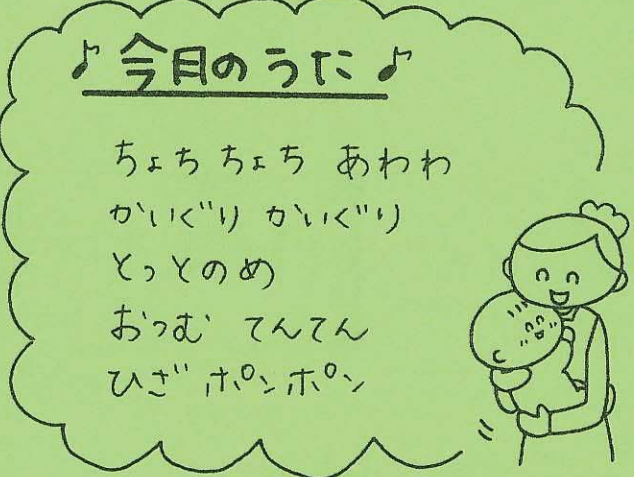 ♪今月のうた♪
ちょち ちょち あわわ
かいぐり かいぐり
とっとのめ
おつむ てんてん
ひざ ポンポン